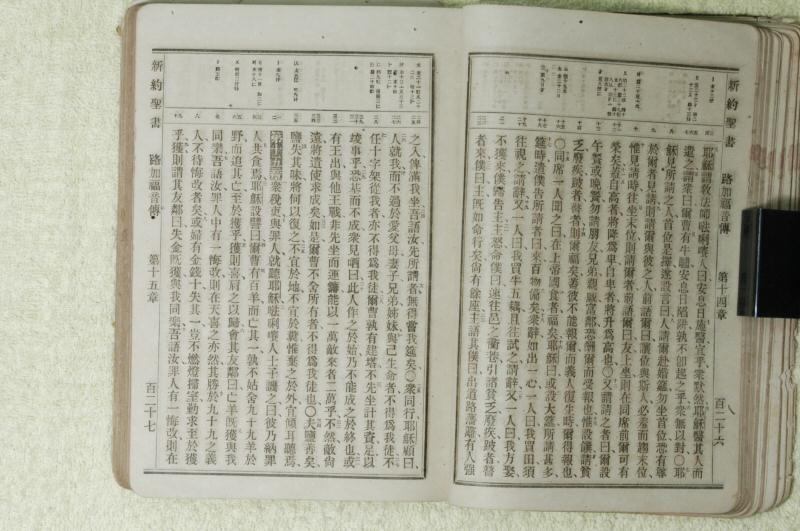 新約聖書 路加福音傳 第十四章 百二十六
耶穌謂教法師𠵽唎㘔人曰安息日施醫宜乎衆默然耶穌醫其人而
遣之謂衆曰爾曹有牛驢安息日陷阱孰不卽起之乎衆無以對〇耶
穌見所請之人首位是擇遂設言曰人請爾赴婚筵勿坐首位恐有尊
於爾者見請則請爾與彼之人前語爾曰讓位與斯人必羞而趨末位
惟見請時往坐末位則請爾者前語爾曰友上坐則在同席前爾可有
榮矣蓋自高者將降爲卑自卑者將升爲高也〇又謂請之者曰爾設
午餐或晚餐勿請朋友兄弟親戚富鄰恐請爾而受報也惟設讌請貧
乏廢疾跛者瞽者則爾福矣蓋彼不能報爾而義人復生時爾得報也
〇同席一人聞之曰在上帝國食者福矣耶穌曰或設大筵所請甚多
筵時遣僕告所請者曰來百物備矣衆辭如出一心一人曰我買田須
往視之請辭又一人曰我買牛五耦且往試之請辭又一人曰我方娶
不獲來僕歸告主主怒命僕曰速往邑之衢巷引諸貧乏廢疾跛者瞽
者來僕曰主旣如命行矣尙有餘座主語其僕曰出道路藩籬有人強
新約聖書 路加福音傳 第十五章 百二十七
之入俾滿我坐吾語汝先所請者無得嘗我筵矣〇衆同行耶穌顧曰
人就我而不過於愛父母妻子兄弟姊妹與己生命者不得爲我徒不
任十字架從我者亦不得爲我徒爾曹孰有建塔不先坐計其費足以
竣事乎恐基而不成衆見哂曰此人作之於始乃不能成之於終也或
有王出與他王戰非先坐而運籌能以一萬敵來者二萬乎不然敵尙
遠將遣使求成矣如是爾曹不舍所有者不得爲我徒也〇夫鹽善矣
鹽失其味將何以復之不宜於地不宜於糞惟棄之於外宜傾耳聽焉
第十五章衆稅吏與罪人就聽耶穌𠵽唎㘔人士子譏之曰彼乃納罪
人共食焉耶穌設譬曰爾曹有百羊而亡其一孰不姑舍九十九羊於
野而追其亡至於獲乎獲則喜肩之以歸會其友鄰曰亡羊旣獲與我
同樂吾語汝罪人中有一悔改則在天喜之亦然其勝於九十九之義
人不待悔改者矣或婦有金錢十失其一豈不燃燈掃室勤求至於獲
乎獲則謂其友鄰曰失金旣獲與我同樂吾語汝罪人有一悔改則在